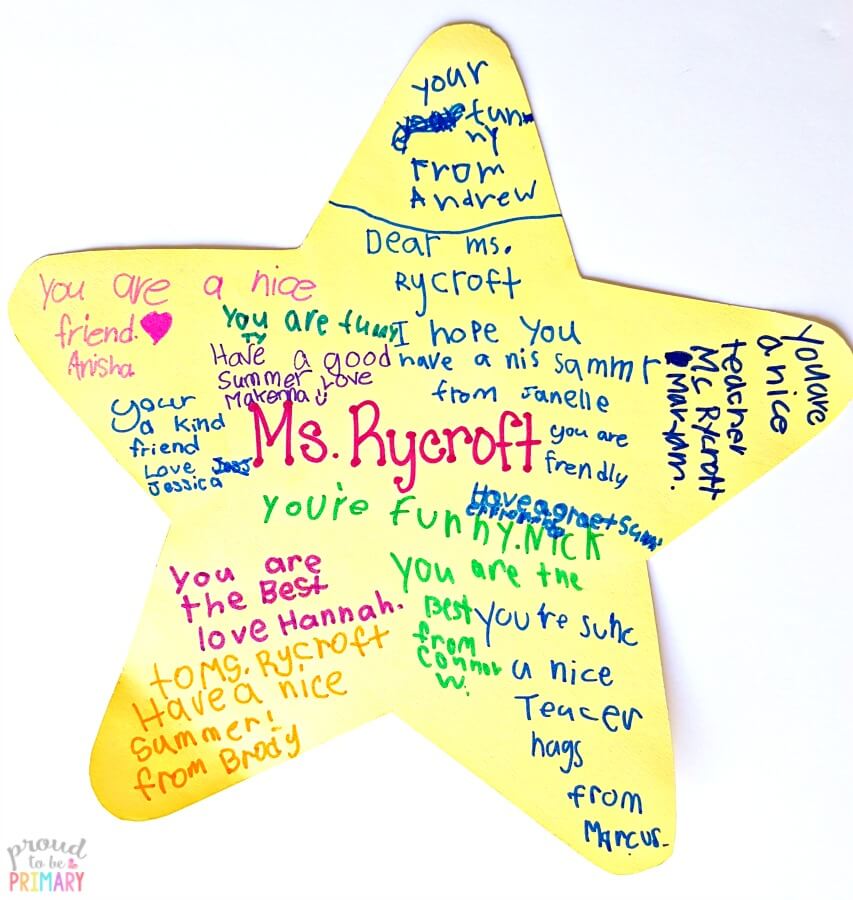 your
funn
ny
From
Andrew
Dear ms.
Rycroft
I hope you
have a nis sammr
from Janelle
You are a nice
friend.
Anisha
You are funny
TY
Have a good
Summer Love
Makenna
your
a kind
friend
Love
Jessica
Ms. Rycroft
you are
frendly
You are
a nice
teacher
Ms Rycroft
Have a graet Sum
you're Funny. Nick
You are
the Best
love Hannah.
You are the
Best
from
Connor
W.
to Ms. Rycroft
Have a nice
summer!
from Brody
you're suhc
a nice
Teacer
hags
from
Marcus.
proud
to be a
PRIMARY